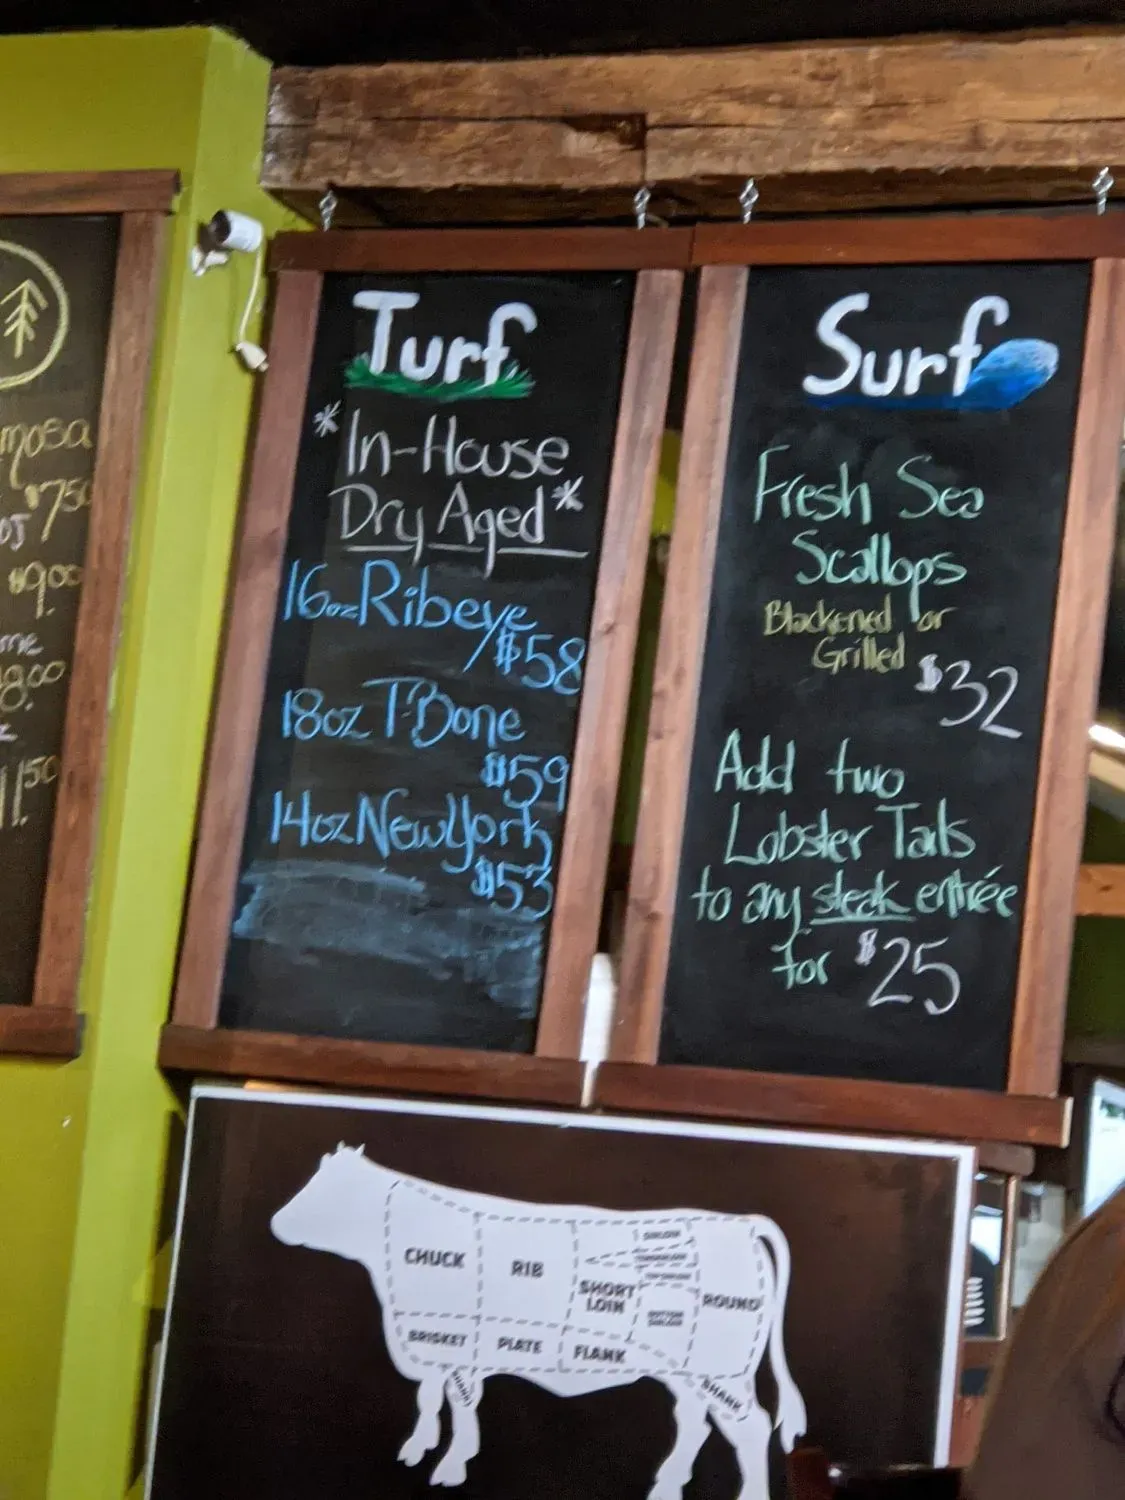 mosa
$7.50
OJ
$9.00
me
11.50
Turf
*In-House
Dry Aged*
16oz Ribeye
/$58
18oz T-Bone
$59
14oz New York
$53
Surf
Fresh Sea
Scallops
Blackened or
Grilled
$32
Add two
Lobster Tails
to any steak entrée
for $25
CHUCK
RIB
SHORT
LOIN
SIRLOIN
ROUND
BRISKET
PLATE
FLANK
SHANK
SHANK